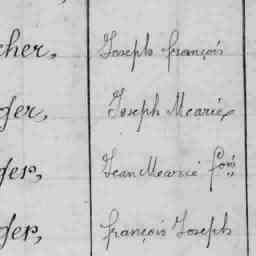 cher, Joseph françois
ger, Joseph Mearie
ges, Jean Mearie fçois
ges, françois Joseph